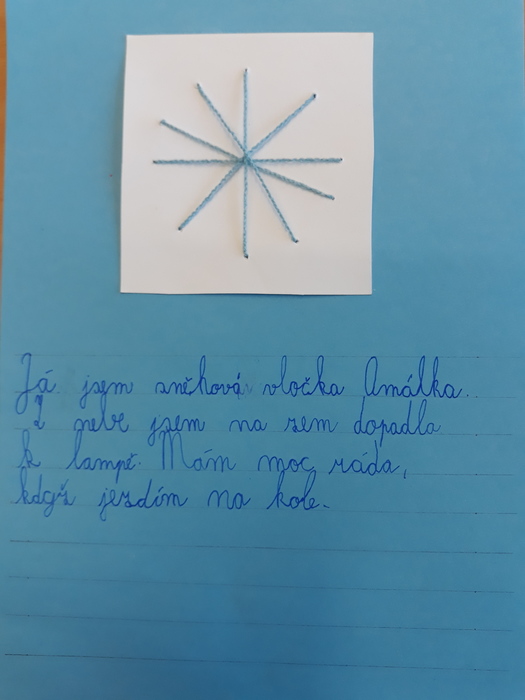 Já jsem sněhová vločka Amálka.
Z nebe jsem na zem dopadla
k lampě. Mám moc ráda,
když jezdím na kole.